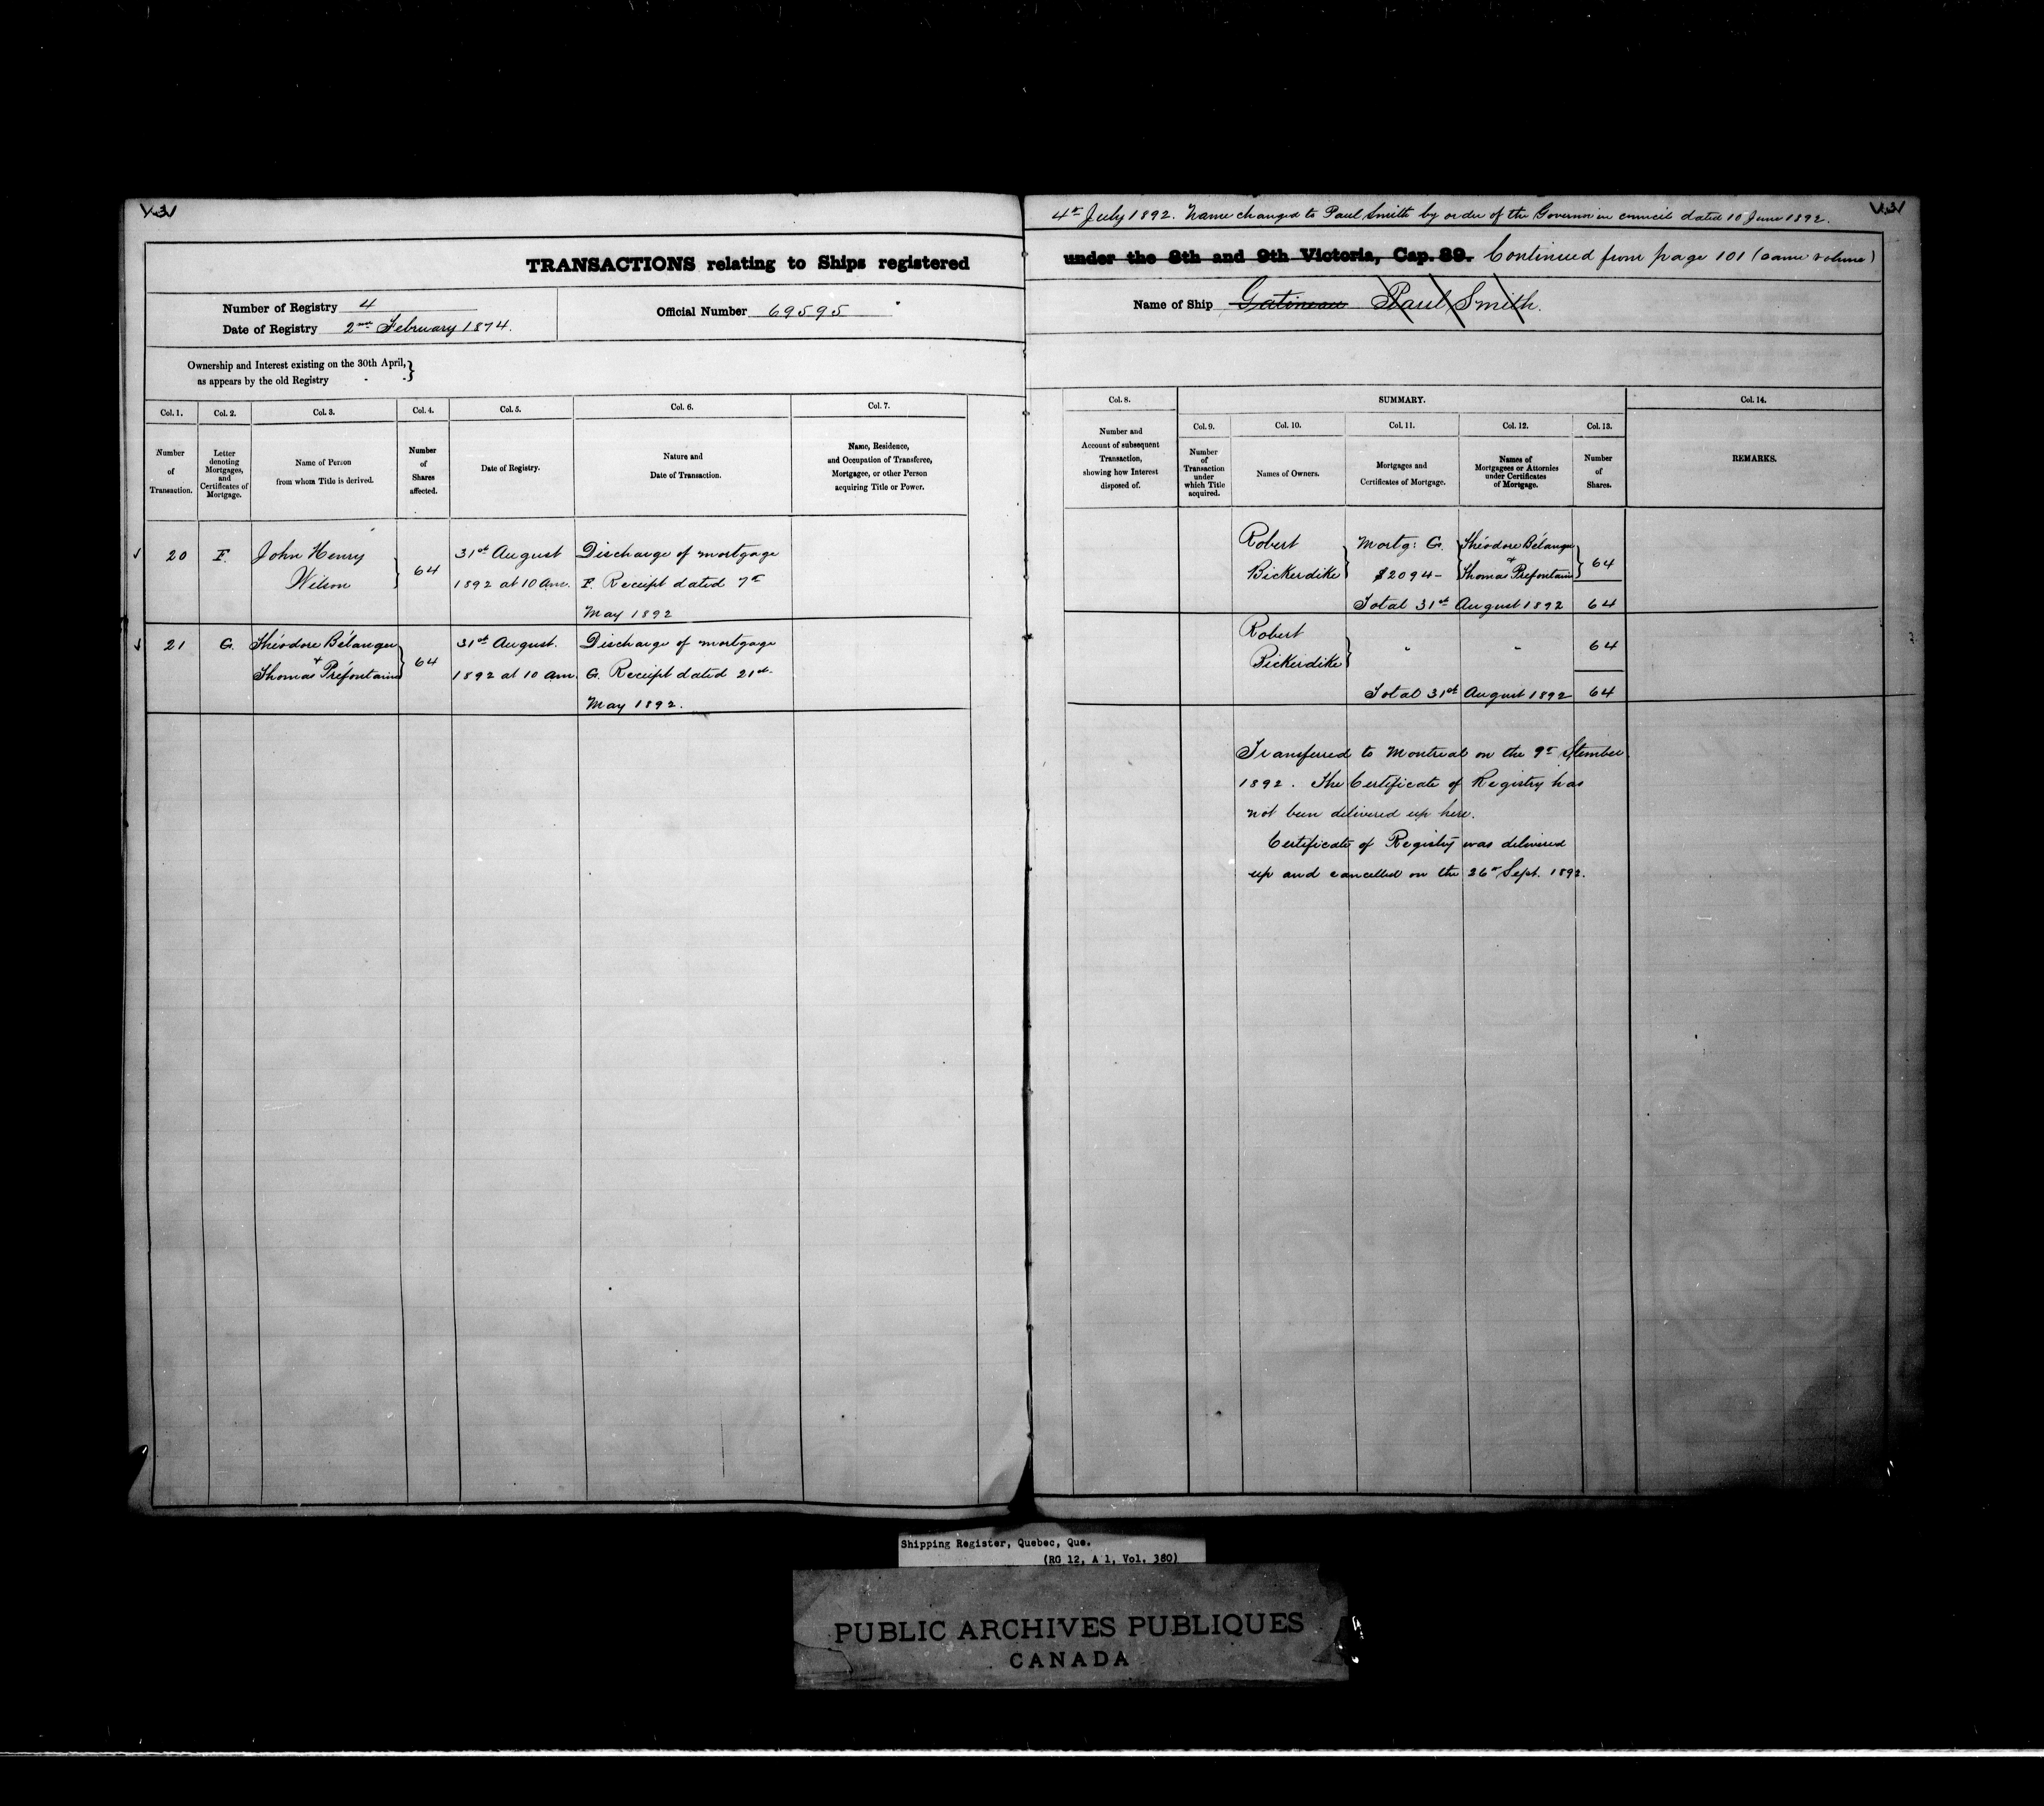 4th July 1892. Name changed to Paul Smith by order of the Governor in council dated 10 June 1892.
TRANSACTIONS relating to Ships registered
under the 8th and 9th Victoria, Cap. 89. Continued from page 101 (same volume)
Number of Registry 4
Date of Registry 2nd February 1874.
Official Number 69595
Name of Ship Gatineau Paul Smith.
Ownership and Interest existing on the 30th April,
as appears by the old Registry
Col. 1.
Number
of
Transaction.
Col. 2.
Letter
denoting
Mortgages,
and
Certificates of
Mortgage.
Col. 3.
Name of Person
from whom Title is derived.
Col. 4.
Number
of
Shares
affected.
Col. 5.
Date of Registry.
Col. 6.
Nature and
Date of Transaction.
Col. 7.
Name, Residence,
and Occupation of Transferee,
Mortgagee, or other Person
acquiring Title or Power.
Col. 8.
Number and
Account of subsequent
Transaction,
showing how Interest
disposed of.
SUMMARY.
Col. 9.
Number
of
Transaction
under
which Title
acquired.
Col. 10.
Names of Owners.
Col. 11.
Mortgages and
Certificates of Mortgage.
Col. 12.
Names of
Mortgagees or Attornies
under Certificates
of Mortgage.
Col. 13.
Number
of
Shares.
Col. 14.
REMARKS.
20
F.
John Henry
Wilson
64
31st August
1892 at 10 am.
Discharge of mortgage
F. Receipt dated 7th
May 1892
Robert
Bickerdike
Mortg: G.
$2094-
Théodore Bélanger
+
Thomas Préfontaine
64
Total 31st August 1892 64
21
G.
Théodore Bélanger
+
Thomas Préfontaine
64
31st August.
1892 at 10 am.
Discharge of mortgage
G. Receipt dated 21st
May 1892.
Robert
Bickerdike
" "
64
Total 31st August 1892 64
Transferred to Montreal on the 9th
1892. The Certificate of Registry has
not been delivered up here.
Certificate of Registry was delivered
up and cancelled on the 26th Sept. 1892.
Shipping Register, Quebec, Que.
(RG 12, A 1, Vol. 380)
PUBLIC ARCHIVES PUBLIQUES
CANADA